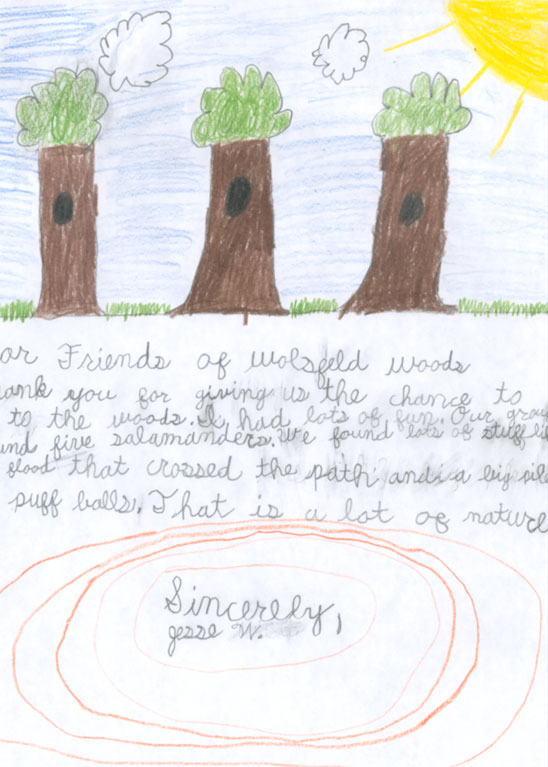 ar Friends of wolsfeld woods
ank you for giving us the chance to
to the woods. I had lots of fun. Our grou
und five salamanders. We found lots of stuff li
flood that crossed the path and a big pile
puff balls. That is a lot of nature
Sincerely,
jesse W.